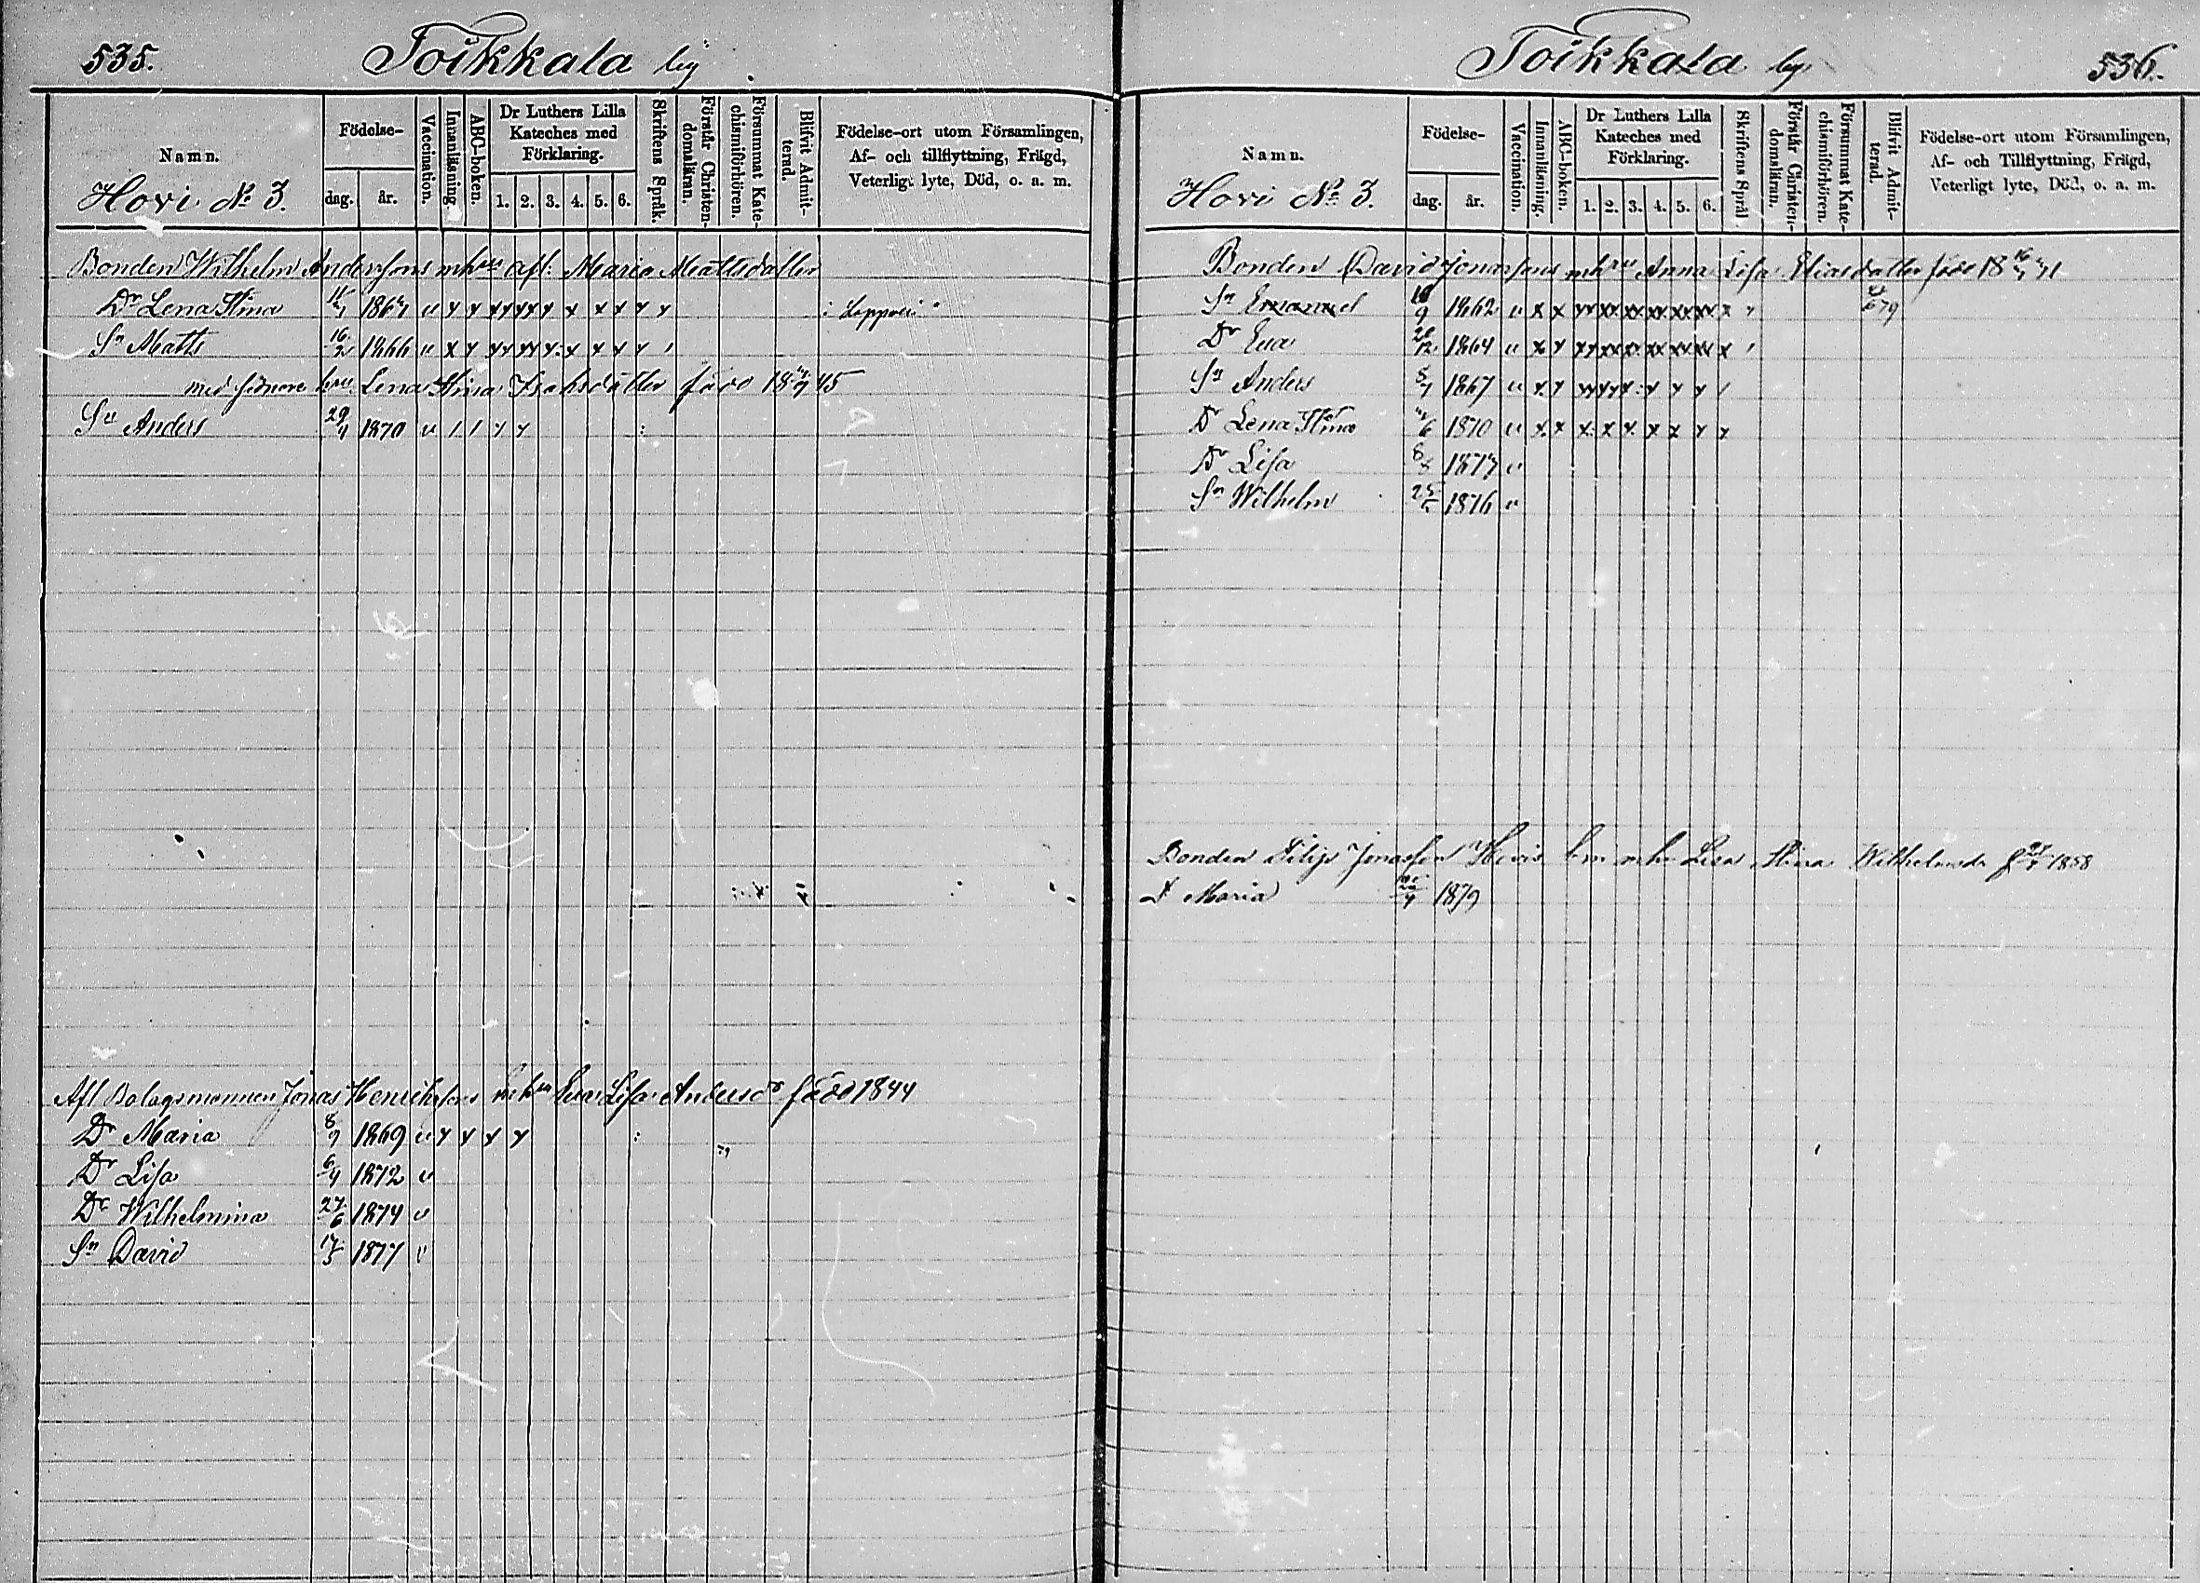 535. Toikkala by
Namn.
Födelse-
dag. år.
Vaccination.
Innanläsning.
ABC-boken.
Dr Luthers Lilla
Kateches med
Förklaring.
1. 2. 3. 4. 5. 6.
Skriftens Språk.
Förstår Christen-
domsläran.
Försummat Kate-
chismiförhören.
Blifvit Admit-
terad.
Födelse-ort utom Församlingen,
Af- och tillflyttning, Frägd,
Veterligt lyte, Död, o. a. m.
Hovi No 3.
Bonden Wilhelm Anderssons mhru Afl. Maria Mattsdotter
Dr Lena Stina v x x x x x x x x x x x
Sn Matts 16/2 1866 v x x x x x x x x x x
med sednare hru Lena Stina Isaksdotter född 18 45
Sn Anders 29/4 1870 v
Afl Bolagsmannen Jonas Henrikssons mhru Eva Lisa Andersdr född 1844
Dr Maria 8/9 1869 v x x x x
Dr Lisa 6/4 1872 v
Dr Wilhelmina 27/6 1874 v
Sn David 17/5 1877 v
Toikkala by 536.
Namn.
Födelse-
dag. år.
Vaccination.
Innanläsning.
ABC-boken.
Dr Luthers Lilla
Kateches med
Förklaring.
1. 2. 3. 4. 5. 6.
Skriftens Språk.
Förstår Christen-
domsläran.
Försummat Kate-
chismiförhören.
Blifvit Admit-
terad.
Födelse-ort utom Församlingen,
Af- och Tillflyttning, Frägd,
Veterligt lyte, Död, o. a. m.
Hovi No 3.
Bonden David Jonassons mhru Anna Lisa Eliasdotter född 18 41
Sn Emanuel 1862 v x x xx xx xx xx xx xx x 79
Dr Eva 1864 v x x xx xx xx xx xx xx x
Sn Anders 1867 v x x
Dr Lena Stina 1870 v x x x x x x x x x
Dr Lisa v
Sn Wilhelm 1876 v
Bonden Filip Jonasson Hovis mhu Lena Stina Wilhelmsdr 1858
D Maria 1879